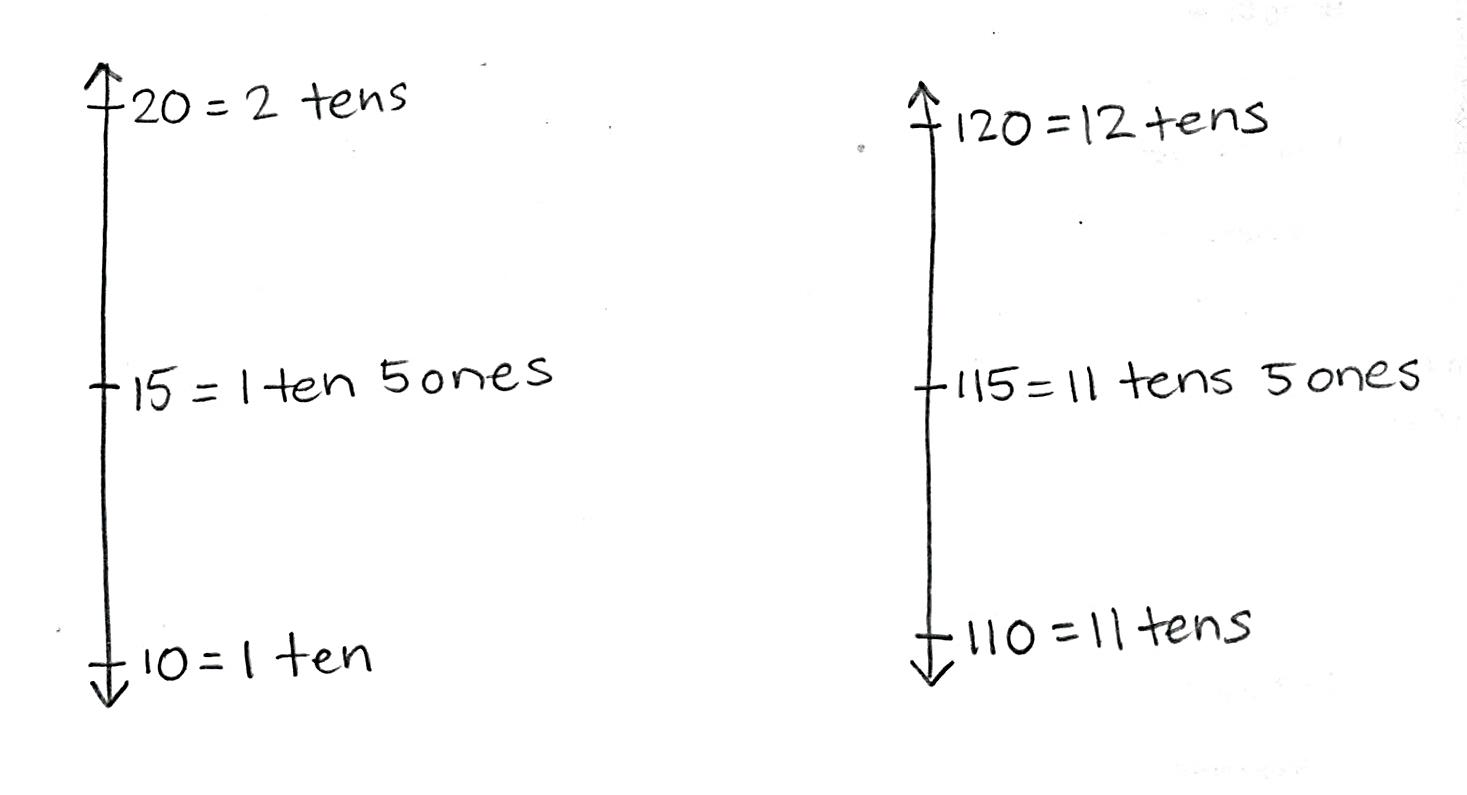 20 = 2 tens
15 = 1 ten 5 ones
10 = 1 ten
120 = 12 tens
115 = 11 tens 5 ones
110 = 11 tens